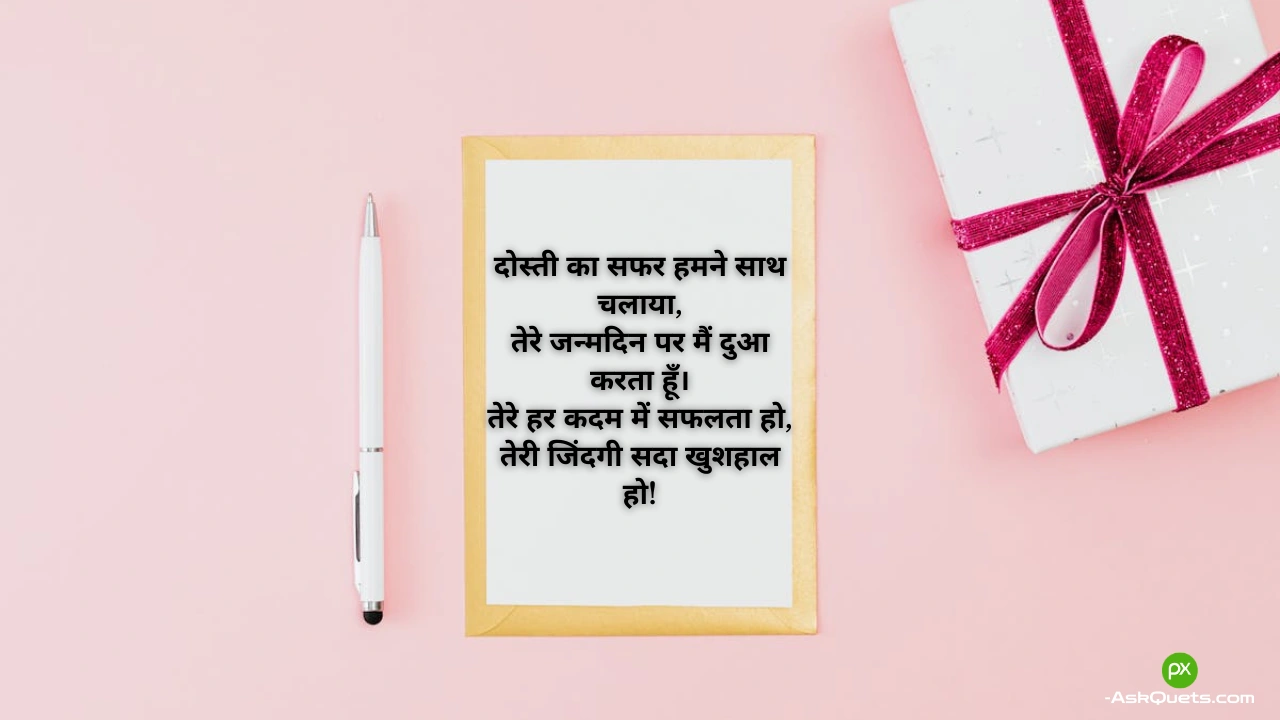 दोस्ती का सफर हमने साथ
चलाया,
तेरे जन्मदिन पर मैं दुआ
करता हूँ।
तेरे हर कदम में सफलता हो,
तेरी जिंदगी सदा खुशहाल
हो!
px
-AskQuets.com